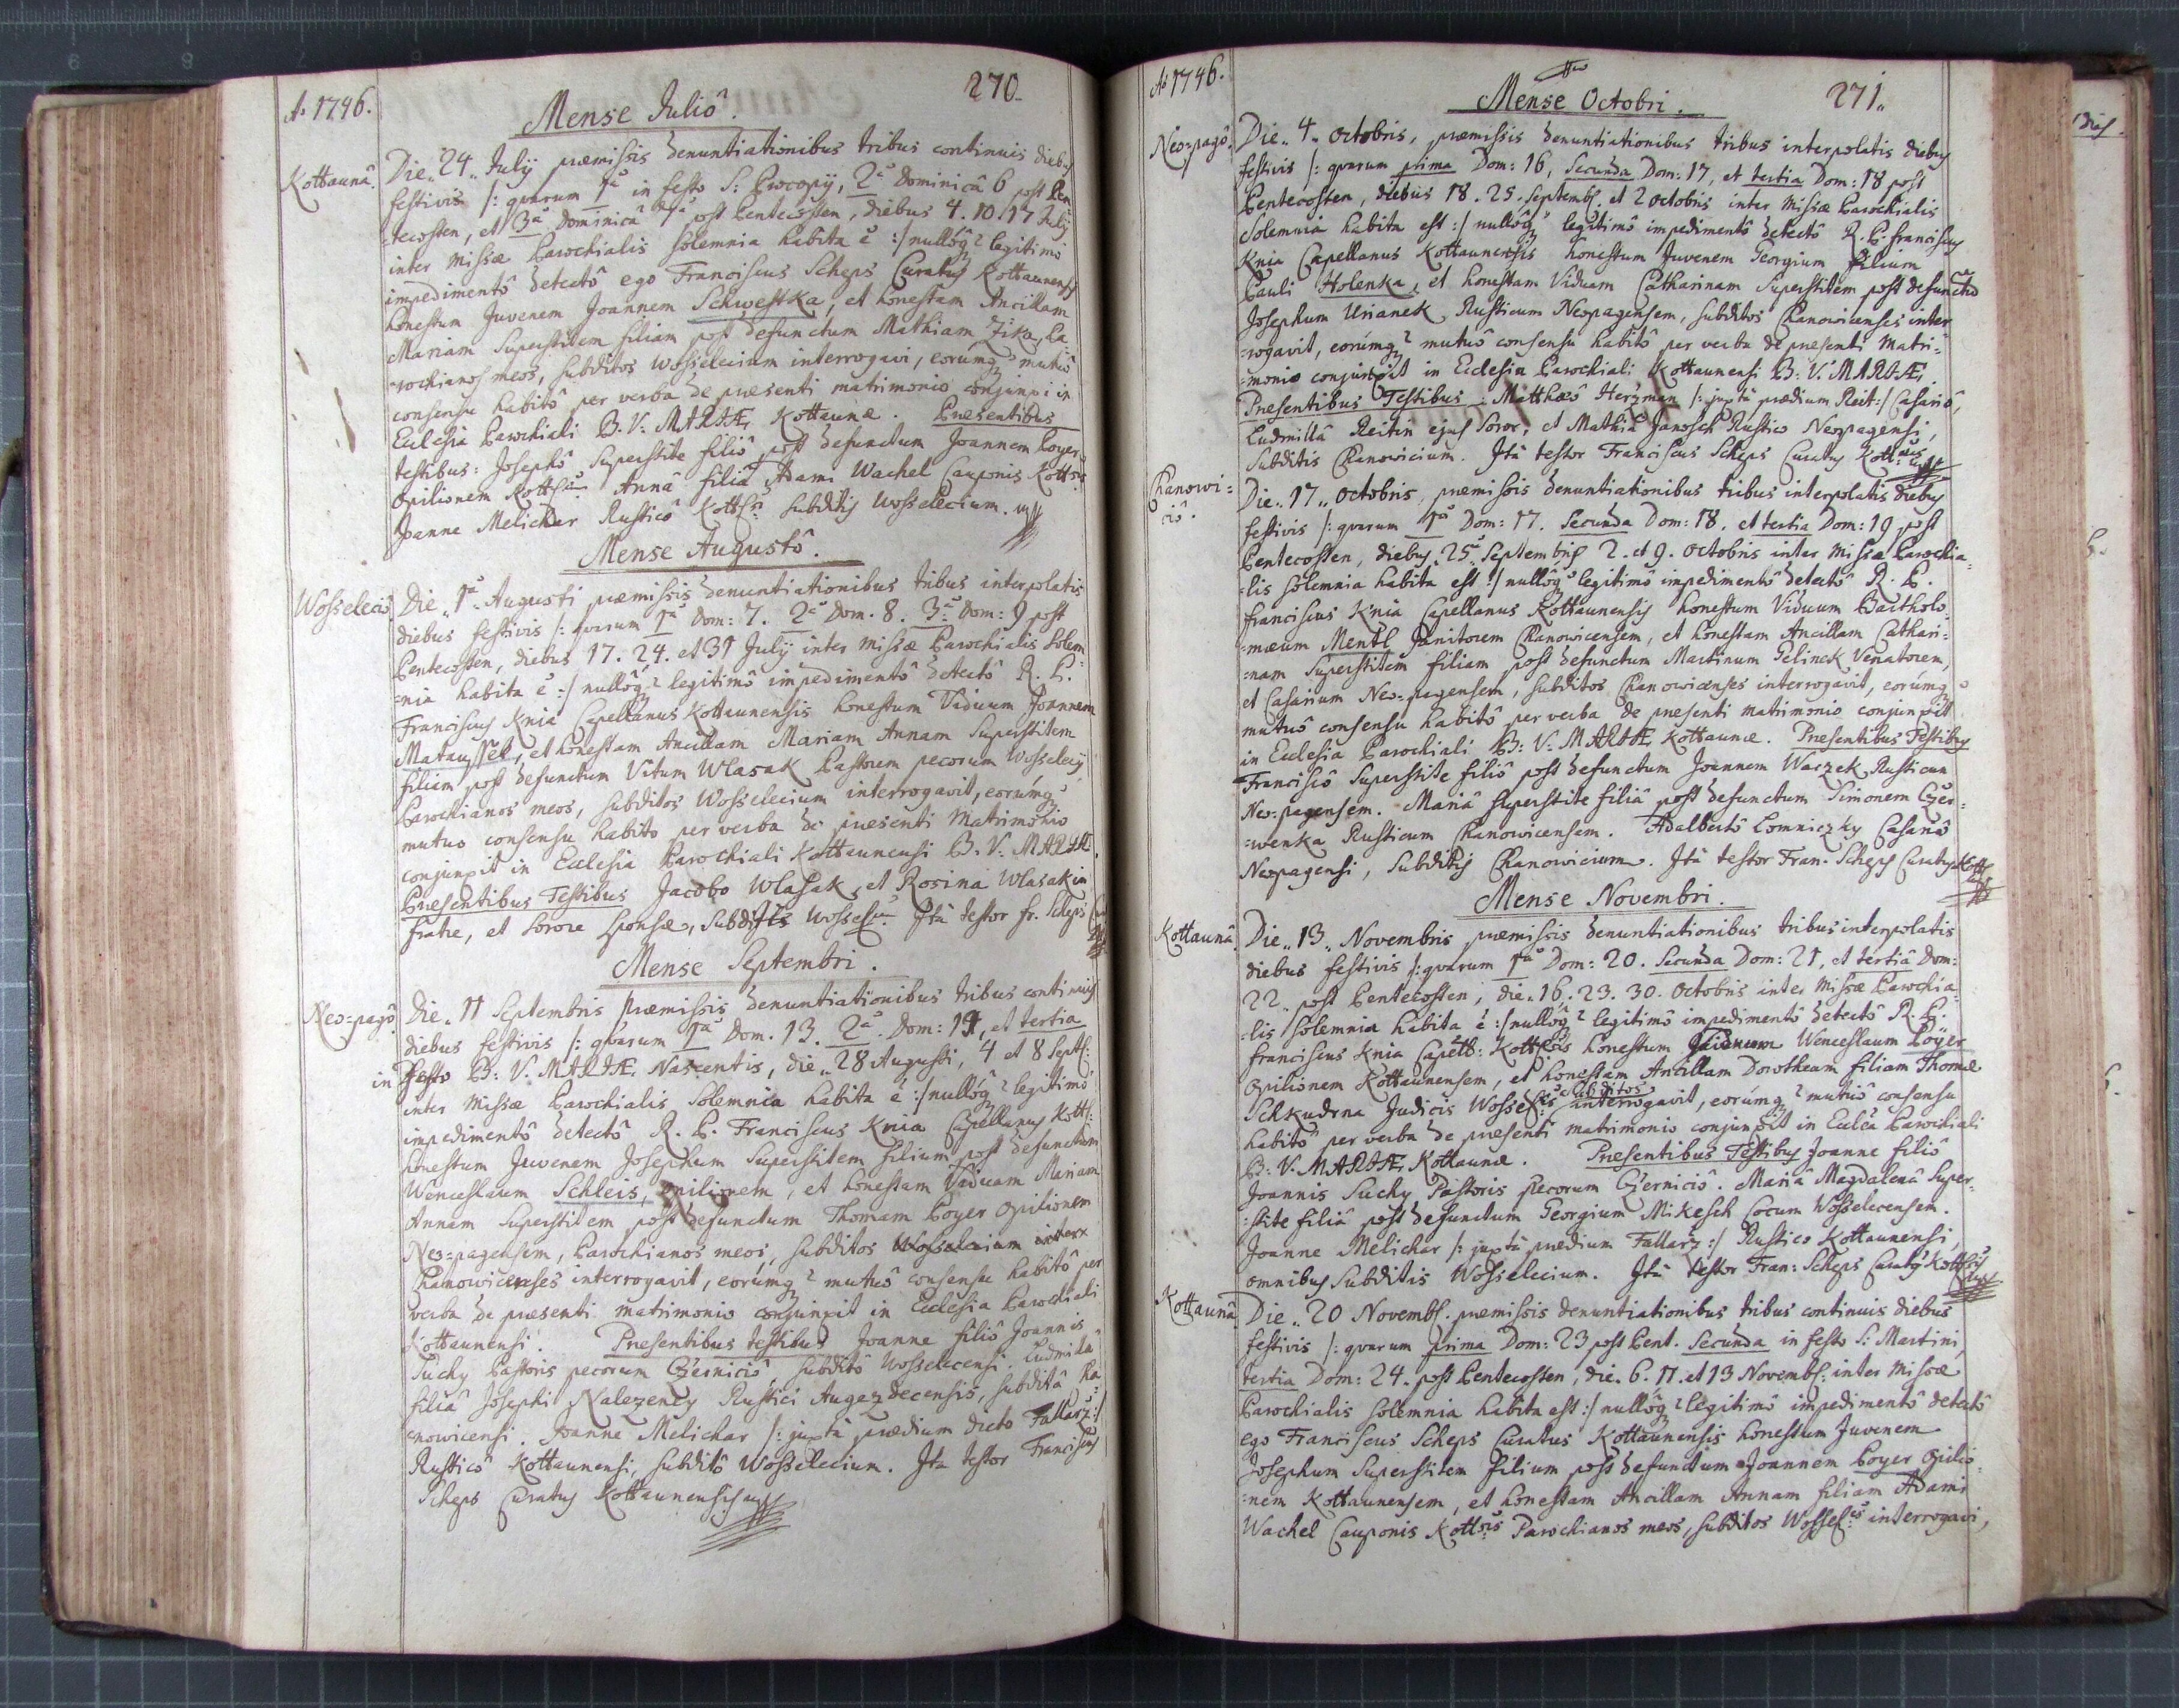 A: 1746.
270.
Mense Julio.
Kottaunâ.
Die „24„ July præmissis denuntiationibus tribus continuis diebus
festivis /: qvarum 1ma in festo S: Procopÿ, 2da Dominicâ 6 post Pen
=tecosten, et 3a Dominicâ 7ma post Pentecosten, diebus 4. 10. 17 July
inter Missæ Parochialis Solemnia habita ē :/ nullôq̃ legitimo
impedimentô detectô ego Franciscus Scheps Curatus Kottaunensis
honestum Juvenem Joannem Schwestka, et honestam Ancillam
Mariam Superstitem filiam post defunctum Mathiam Zika, Pa
=rochianos meos, subditos Wosselecium interrogavi, eorúmq̃ mutuô
consensu habitô per verba de præsenti matrimonio conjunxi in
Ecclesia Parochiali B. V: MARIÆ Kottaunæ. Præsentibus
testibus: Josephô Superstite filiô post defunctum Joannem Poyer
opilionem Kottsem Annâ filiâ Adami Wachel Cauponis Kottsis
Joanne Melichar Rusticô Kottsi subditis Wosselecium. mpp
Mense Augustô.
Wosselecio.
Die „1a Augusti præmissis denuntiationibus tribus interpolatis
diebus festivis /: qvarum 1ma Dom: 7. 2da Dom. 8. 3a Dom: 9 post
Pentecosten, diebus 17. 24. et 31 July inter Missæ Parochialis Solem
=nia habita ē :/ nullôq̃ legitimô impedimentô detectô R. P.
Franciscus Knia Capellanus Kottaunensis honestum Viduum Joannem
Mataussek, et honestam Ancillam Mariam Annam Superstitem
filiam post defunctum Vitum Wlasak Pastorem pecorum Wosselecÿ
Parochianos meos, subditos Wosselecium interrogavit, eorúmq̃
mutuo consensu habito per verba de præsenti Matrimonio
conjunxit in Ecclesia Parochiali Kottaunensi B. V: MARIÆ.
Præsentibus Testibus Jacobo Wlasak, et Rosina Wlasakin
fratre, et Sorore Sponsæ, Subditis Wosselm Ità testor Fr. Scheps Cur
Mense Septembri.
Neo=pagô
Die „11 Septembris præmissis denuntiationibus tribus continuis
diebus festivis /: qvarum 1ma Dom. 13. 2da. Dom: 14, et tertia
in Festo B: V. MARIÆ Nascentis, die „28 Augusti, 4 et 8 Septs:
inter Missæ Parochialis Solemnia habita ē :/ nullôq̃ legitimô
impedimentô detectô R. P. Franciscus Knia Capellanus Kotts:
honestum Juvenem Josephum Superstitem filium post defunctum
Wenceslaum Schleis, opilionem, et honestam Viduam Mariam
Annam Superstitem post defunctum Thomam Poyer opilionem
Neo=pagensem, Parochianos meos, subditos Wosselecium inter
Chanowicenses interrogavit, eorúmq̃ mutuô consensu habitô per
verba de præsenti matrimonio conjunxit in Ecclesia Parochiali
Kottaunensi. Præsentibus testibus Joanne filiô Joannis
Suchy Pastoris pecorum Czerniciô, subditô Wosselecensi. Ludmilâ
filiâ Josephi Nalezency Rustici Augezdecensis, subditâ Cha
=nowicensi. Joanne Melichar /: juxtà prædium dicto Fallarz:/
Rusticô Kottaunensi, subditô Wosselecium. Ità testor Franciscus
Scheps Curatus Kottaunensis mpp
A: 1746.
271.
Mense Octobri.
Neo=pagô.
Die „4„ Octobris, præmissis denuntiationibus tribus interpolatis diebus
festivis /: qvarum prima Dom: 16, Secunda Dom: 17, et tertia Dom: 18 post
Pentecosten, diebus 18. 25. Septembs. et 2 octobris inter Missæ Parochialis
Solemnia habita est :/ nullôq̃ legitimô impedimentô detectô R. P. Franciscus
Knia Capellanus Kottaunensis honestum Juvenem Georgium filium
Pauli Holenka, et honestam Viduam Catharinam Superstitem post defunctũ
Josephum Urianek Rusticum Neopagensem, subditos Chanowicenses inter
=rogavit, eorúmq̃ mutuô consensu habitô per verba de præsenti Matri=
=monio conjunxit in Ecclesia Parochiali Kottaunensi B. V. MARIÆ,
Præsentibus Testibus: Matthæo Herzman /: juxtà prædium Reit:/ Casariô,
Ludmillâ Reitin ejus Soror, et Mathiâ Janosch Rustico Neopagensi,
Subditis Chanowicium. Ità testor Franciscus Scheps Curatus Kottnsis mpp
Chanowi=
ciô.
Die „17„ Octobris, præmissis denuntiationibus tribus interpolatis diebus
festivis /: qvarum 1ma Dom: 17. Secunda Dom: 18. et tertia Dom: 19 post
Pentecosten, diebus 25 Septembris 2. et 9. Octobris inter Missæ Parochia=
=lis solemnia habita est :/ nullôq̃ legitimô impedimentô detectô R. P.
Franciscus Knia Capellanus Kottaunensis honestum Viduum Bartholo=
=mæum Mentl Janitorem Chanowicensem, et honestam Ancillam Cathari=
=nam Superstitem filiam post defunctum Martinum Gelinek Venatorem,
et Casarium Neo=pagensem, subditos Chanowicenses interrogavit, eorúmq̃
mutuô consensu habitô per verba de præsenti matrimonio conjunxit
in Ecclesia Parochiali B: V: MARIÆ Kottaunæ. Præsentibus Testibus
Franciscô Superstite filiô post defunctum Joannem Waczek Rusticum
Neo=pagensem. Mariâ superstite filiâ post defunctum Simonem Czer=
=wenka Rusticum Chanowicensem. Adalbertô Lomniczky Casariô
Neopagensi, Subditis Chanowicium. Ità testor Fran. Scheps Curatus Kotts
Mense Novembri.
Kottaunâ.
Die „13„ Novembris præmissis denuntiationibus tribus interpolatis
diebus festivis /: qvarum 1ma Dom: 20. Secunda Dom: 21, et tertiâ Dom:
22 post Pentecosten, die „16. 23. 30. Octobris inter Missæ Parochia=
=lis Solemnia habita ē :/ nullôq̃ legitimô impedimentô detectô R. P.
Franciscus Knia Capell: Kottsis honestum Viduum Wenceslaum Poÿer
Opilionem Kottaunensem, et honestam Ancillam Dorotheam filiam Thomæ
Schkudrna Judicis Wosselsis subditos interrogavit, eorúmq̃ mutuô consensu
habitô per verba de præsenti matrimonio conjunxit in Ecclēa Parochiali
B: V. MARIÆ, Kottaunæ. Præsentibus Testibus Joanne filiô
Joannis Suchy Pastoris pecorum Czerniciô. Mariâ Magdalenâ Super=
=stite filiâ post defunctum Georgium Mikesch Cocum Wosselecensem.
Joanne Melichar /: juxtà prædium Fallarz:/ Rustico Kottaunensi,
omnibus Subditis Wosselecium. Ità testor Fran: Scheps Curatus Kottsis mpp
Kottaunâ.
Die „20 Novembs. præmissis denuntiationibus tribus continuis diebus
festivis /: qvarum prima Dom: 23 post Pent. Secunda in festo S: Martini,
tertia Dom: 24. post Pentecosten, die. 6. 11. et 13 Novembs: inter Missæ
Parochialis Solemnia habita est :/ nullôq̃ legitimô impedimentô detectô
ego Franciscus Scheps Curatus Kottaunensis honestum Juvenem
Josephum Superstitem filium post defunctum Joannem Poyer Opilio=
=nem Kottaunensem, et honestam Ancillam Annam filiam Adami
Wachel Cauponis Kottsis Parochianos meos, subditos Wosselsis interrogavi,